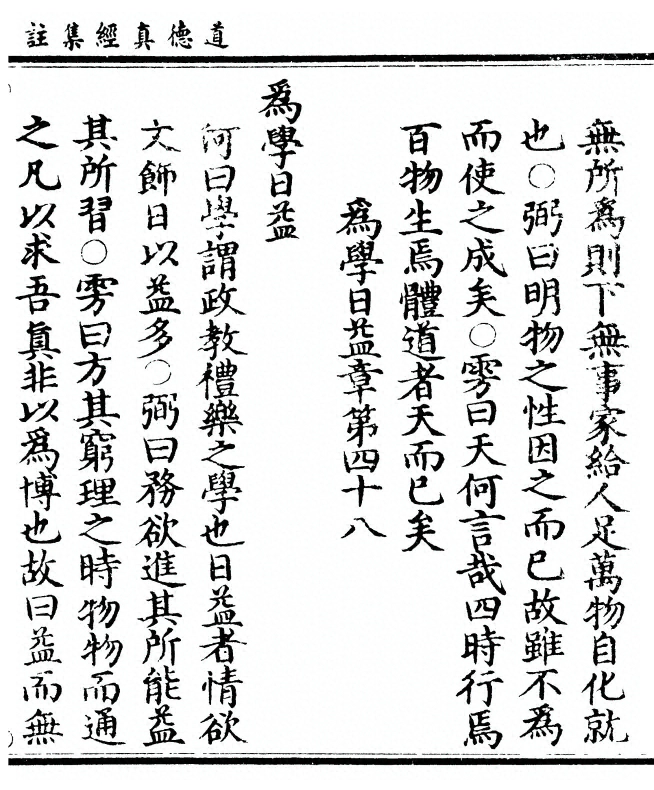 道德真經集註
無所爲則下無事家給人足萬物自化就
也○弼曰明物之性因之而已故雖不爲
而使之成矣○雱曰天何言哉四時行焉
百物生焉體道者天而已矣
爲學日益章第四十八
爲學日益
河曰學謂政教禮樂之學也日益者情欲
文飾日以益多○弼曰務欲進其所能益
其所習○雱曰方其窮理之時物物而通
之凡以求吾真非以爲博也故曰益而無